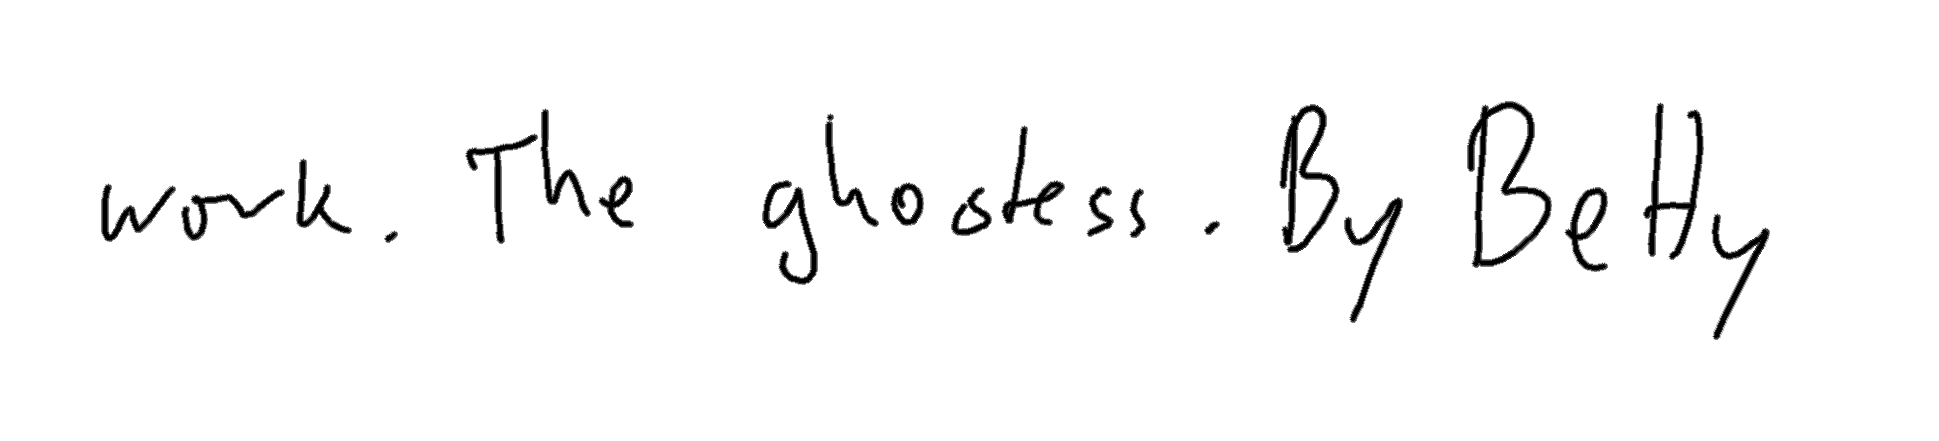 work. The ghostess. By Betty